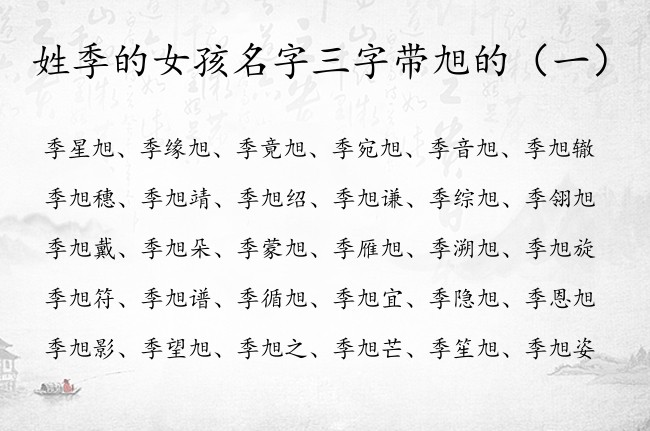 姓季的女孩名字三字带旭的（一）
季星旭、季缘旭、季竟旭、季宛旭、季音旭、季旭辙
季旭穗、季旭靖、季旭绍、季旭谦、季综旭、季翎旭
季旭戴、季旭朵、季蒙旭、季雁旭、季溯旭、季旭旋
季旭符、季旭谱、季循旭、季旭宜、季隐旭、季恩旭
季旭影、季望旭、季旭之、季旭芒、季笙旭、季旭姿